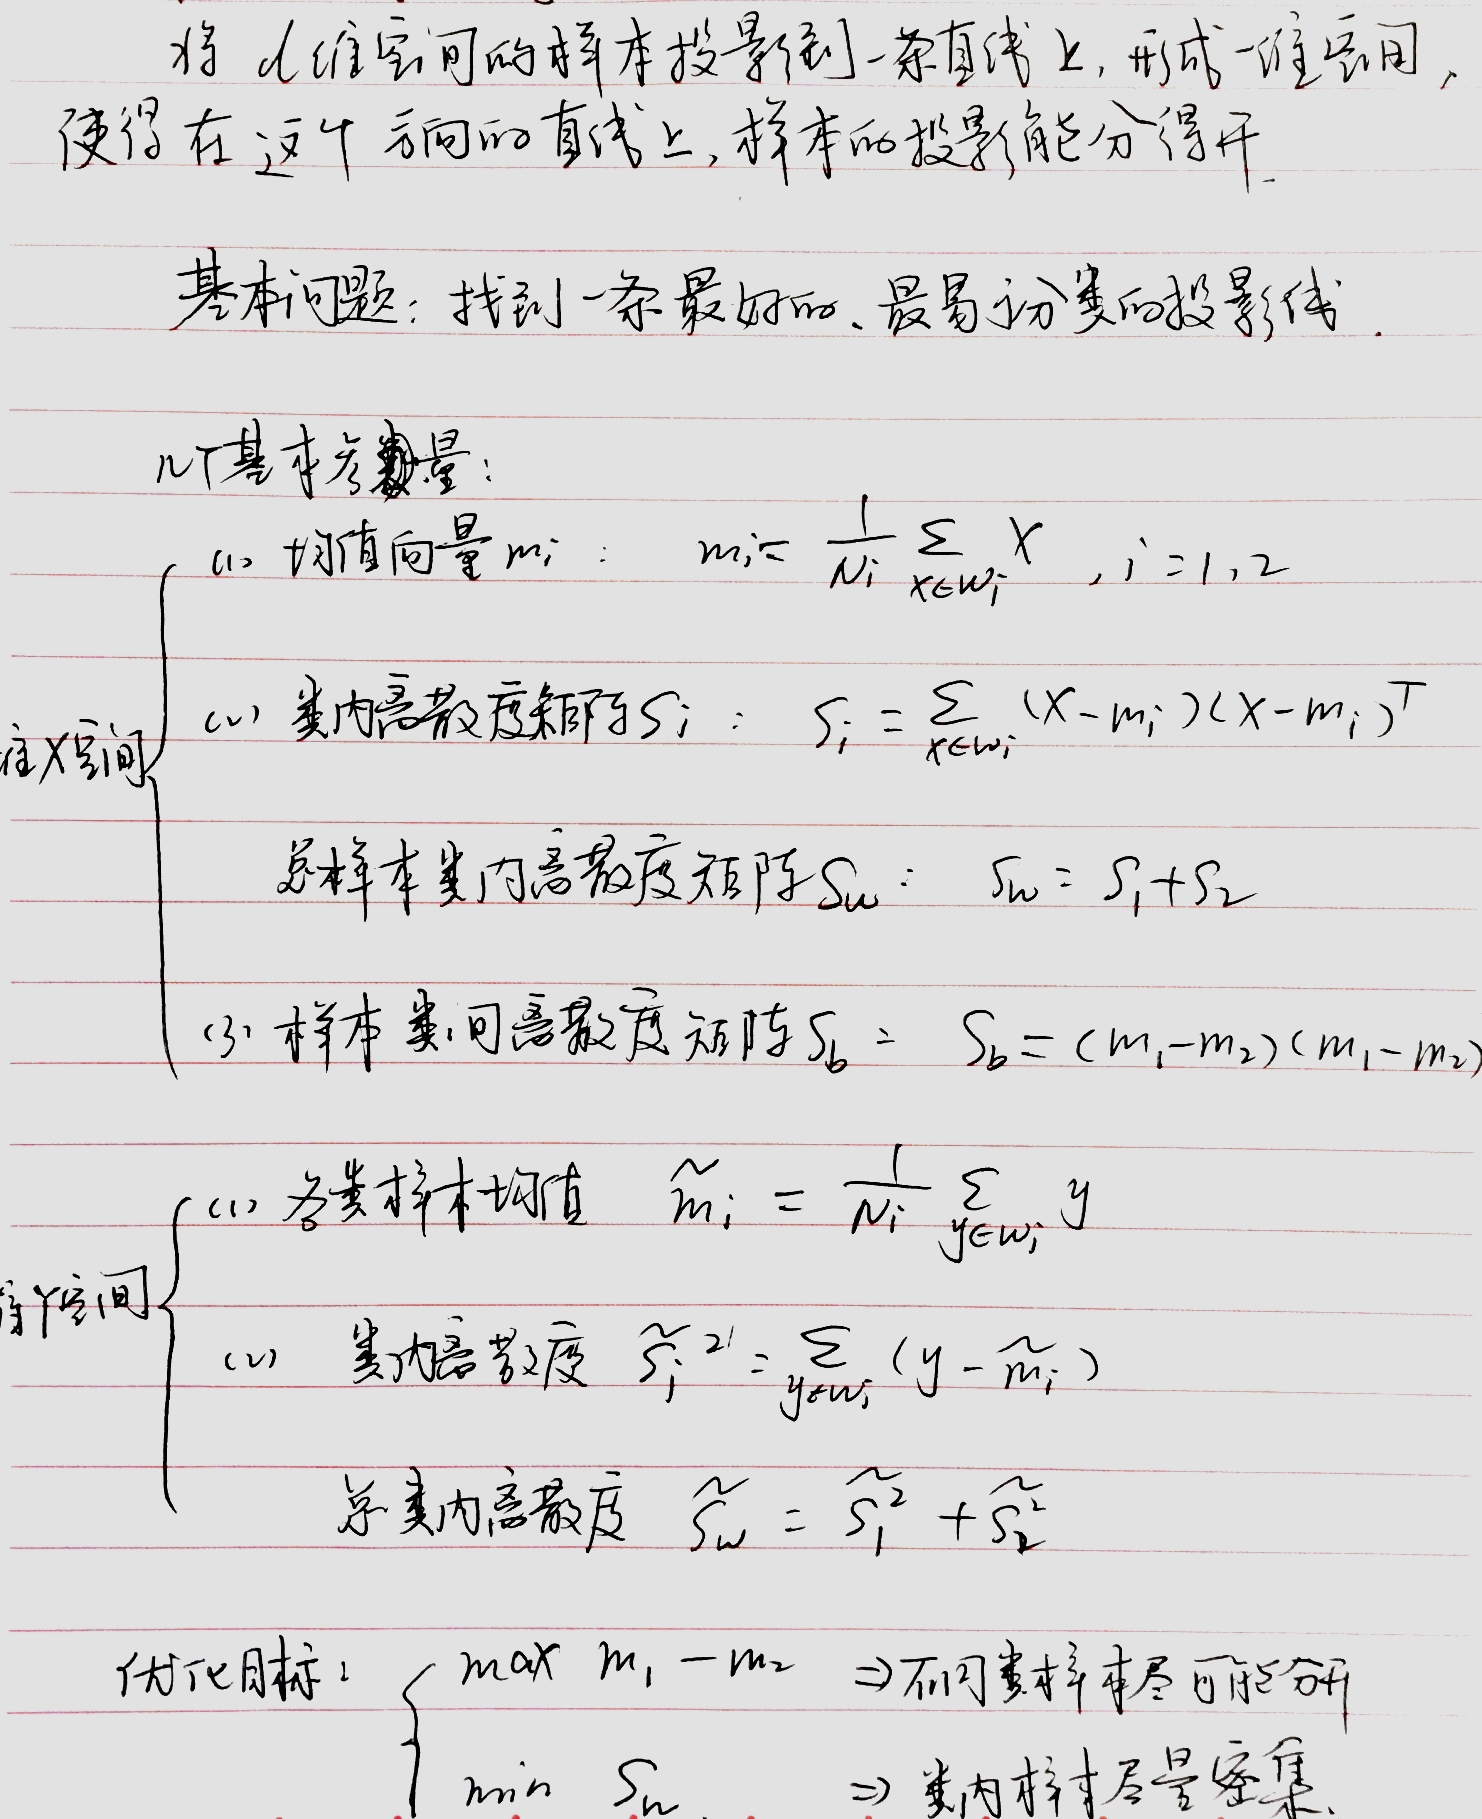 将 d 维空间的样本投影到一条直线上, 形成一维空间,
使得在这个方向的直线上, 样本的投影能分得开.
基本问题: 找到一条最好的、最易于分类的投影线.
几个基本参数量:
(1) 均值向量 mᵢ : mᵢ = 1/Nᵢ Σ_{x∈wᵢ} x , i = 1, 2
维X空间
(2) 类内离散度矩阵 Sᵢ : Sᵢ = Σ_{x∈wᵢ} (x - mᵢ)(x - mᵢ)ᵀ
总样本类内离散度矩阵 Sw : Sw = S₁ + S₂
(3) 样本类间离散度矩阵 S_b : S_b = (m₁ - m₂)(m₁ - m₂)
(1) 各类样本均值 m̃ᵢ = 1/Nᵢ Σ_{y∈wᵢ} y
维Y空间
(2) 类内离散度 S̃ᵢ² = Σ_{y∈wᵢ} (y - m̃ᵢ)
总类内离散度 S̃w = S̃₁² + S̃₂²
优化目标: { max m₁ - m₂ ⇒ 不同类样本尽可能分开
min Sw ⇒ 类内样本尽量密集.